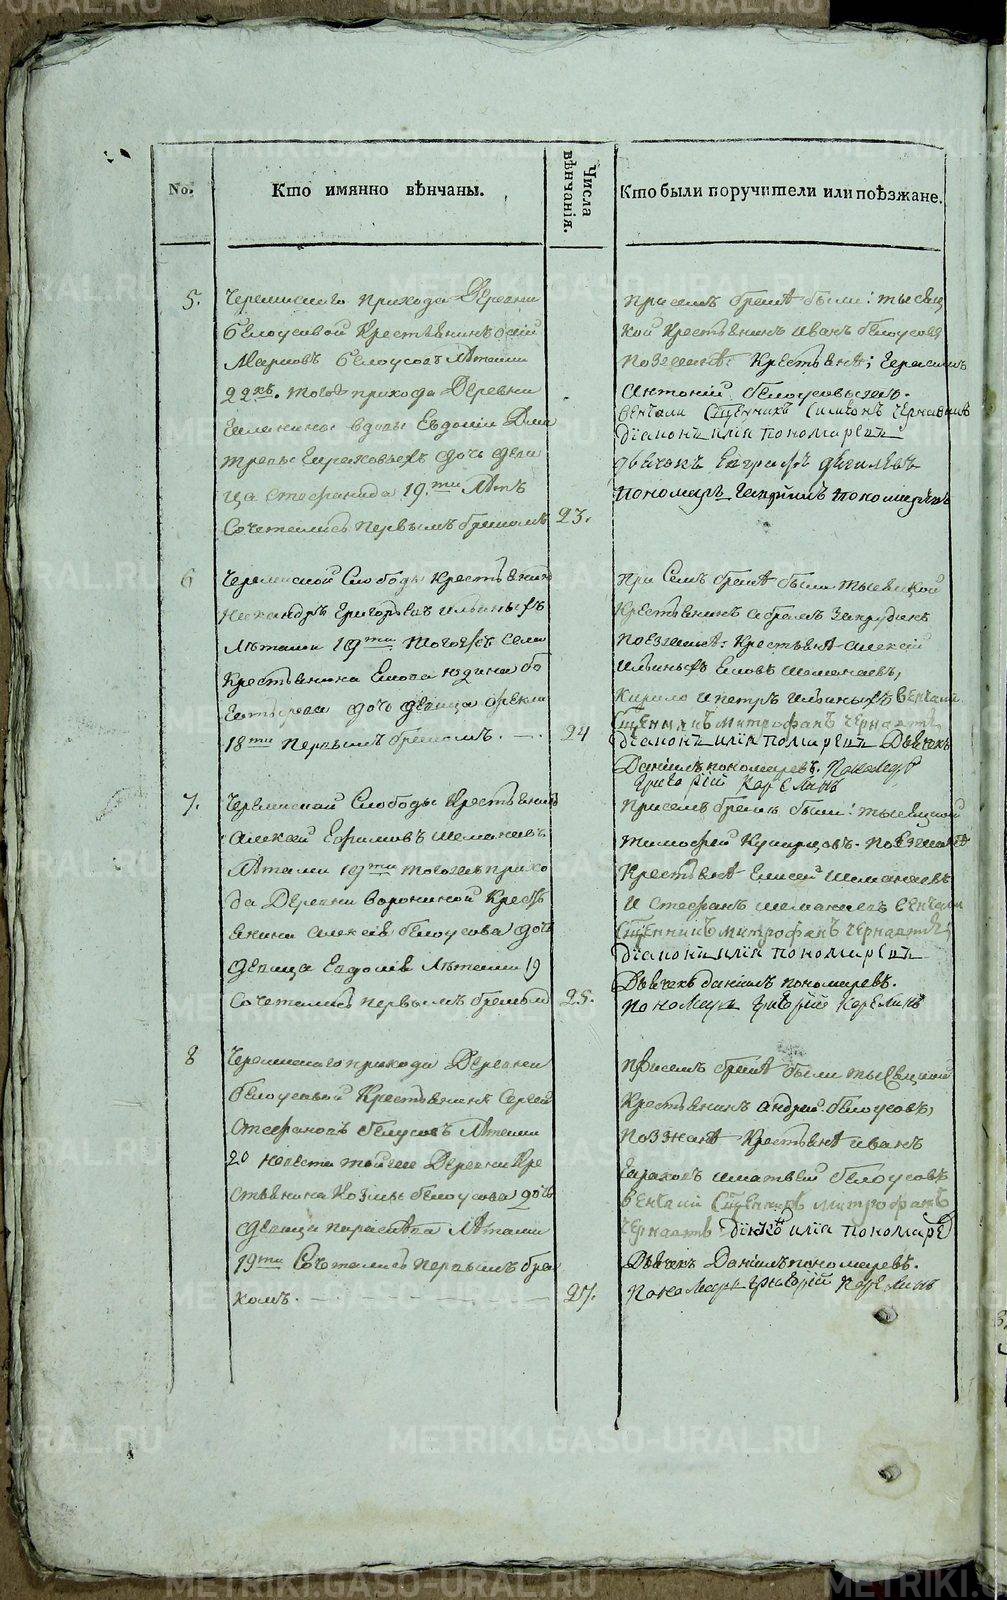 No.
Кто имянно вѣнчаны.
Числа вѣнчанія.
Кто были поручители или поѣзжане.
5.
Черемискаго прихода Деревни
Белоусовой Крестьянинъ
Марковъ Белоусовъ лѣтами
22хъ. тогожъ прихода Деревни
вдовы Евдокіи Дми
дочь деви
ца Стефанида 19.ти лѣтъ
Сочетались первымъ бракомъ
23.
При семъ бракѣ были: тысяц
кой крестьянинъ Иванъ Белоусовъ
Поезжанѣ: Крестьянѣ: Герасимъ
Антоній Белоусовы
венчали Сщенникъ Симеонъ Чернавинъ
Діаконъ илія Пономаревъ
дьячекъ Евграфъ
Пономарь Пономаревъ
6
Черемиской Слободы Крестьянинъ
Никандръ Григорьевъ Ильиныхъ
лѣтами 19ти тогожъ села
Крестьянина
дочь девица Фекла
18ти первымъ бракомъ. —.—
24
При Семъ бракѣ были тысяцкой
Крестьянинъ Абрамъ
Поезжанѣ: Крестьянѣ Алексій
Ильиныхъ Шаманаевъ,
Кирило и Петръ Ильиныхъ венчали
Сщенникъ Митрофанъ Чернавинъ
Діаконъ илія Помаревъ Дьячекъ
Даніилъ пономаревъ. Пономарь
Григорій Карелинъ
7.
Черемиской Слободы Крестьянинъ
Алексей Ефимовъ Шаманаевъ
лѣтами 19ти тогожъ прихо
да Деревни Ворониной Кресть
янина Алексія Белоусова дочь
девица Евдокія лѣтами 19
Сочетались первымъ бракомъ
25.
При семъ бракѣ были: тысяцкой
Тимофей Кунгурцовъ. Поезжанѣ
Крестьянѣ Елисей Шаманаевъ
и Стефанъ Шаманаевъ венчали
Сщенникъ Митрофанъ Чернавинъ
Діаконъ илія Пономаревъ
Дьячекъ даніилъ пономаревъ.
Пономарь григорій Карелинъ
8
Черемискаго прихода Деревни
Белоусовой Крестьянинъ Сергей
Стефановъ Белоусовъ лѣтами
20 невеста тойже Деревни Кре
стьянина Козмы Белоусова дочь
девица параскева лѣтами
19ти Сочетались первымъ бра
комъ. — — — —
27.
При семъ бракѣ были тысяцкой
Крестьянинъ Андрей Белоусовъ,
Поезжанѣ Крестьянѣ Иванъ
и Матвей Белоусовъ
венчали Сщенникъ Митрофанъ
Чернавинъ Діаконъ илія Пономаре
Дьячекъ Даніилъ пономаревъ.
Пономарь григорій Карелинъ
METRIKI.GASO-URAL.RU